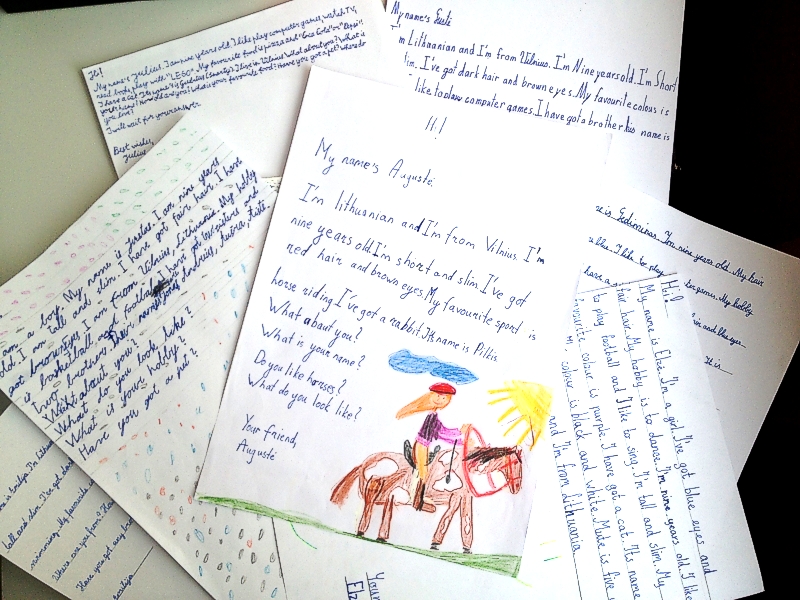 Hi!
My name's Julius. I am nine years old. I like play computer games, watch TV,
read books, play with "LEGO". My favourite food is pizza and "Coca Cola" or "Pepsi".
I have a cat.
I live in Vilnius. What about you? What is
your name? How old are you? What is your favourite food? Have you got a pet? Where do
you live?
I will wait for your answer.
Best wishes,
Julius
My name's
I'm Lithuanian and I'm from Vilnius. I'm Nine years old. I'm Short
slim. I've got dark hair and brown eyes. My favourite colous is
like to play computer games. I have got a brother his name is
Hi!
My name's Augustė.
I'm lithuanian and I'm from Vilnius. I'm
nine years old I'm short and slim. I've got
red hair and brown eyes. My favourite sport is
horse riding I've got a rabbit. It's name is Pilkis
What about you?
What is your name?
Do you like horses?
What do you look like?
Your friend,
Augustė
am a boy. My name is Justas. I am nine years
old I am tall and slim. I have got fair hair. I have
got brown eyes I am from Vilnius Lithuania. My hobby
is basketball and football I have got two sisters and
two brothers. Their names
What about you?
What do you look like?
What is your hobby?
Have you got a pet?
is Gediminas. I'm nine years old. My hair
blue. I like to play
My hobby
hair and blue eyes
It is
Hi!
My name is Elzė. I'm a girl. I've got blue eyes and
fair hair. My hobby is to dance. I'm nine years old. I like
to play football and I like to sing. I'm tall and slim. My
favourite colour is purple. I have got a cat. Its name
colour is black and white. Mute is five
and I'm from lithuania
tall and slim. I've got
swimming. My favourite
Where are you from?
Have you got any
Your
Elz